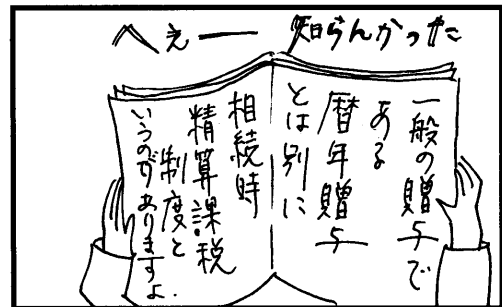 へぇー 知らんかった
一般の贈与で
ある
暦年贈与
とは別に
相続時
精算課税
制度と
いうのがありますよ.